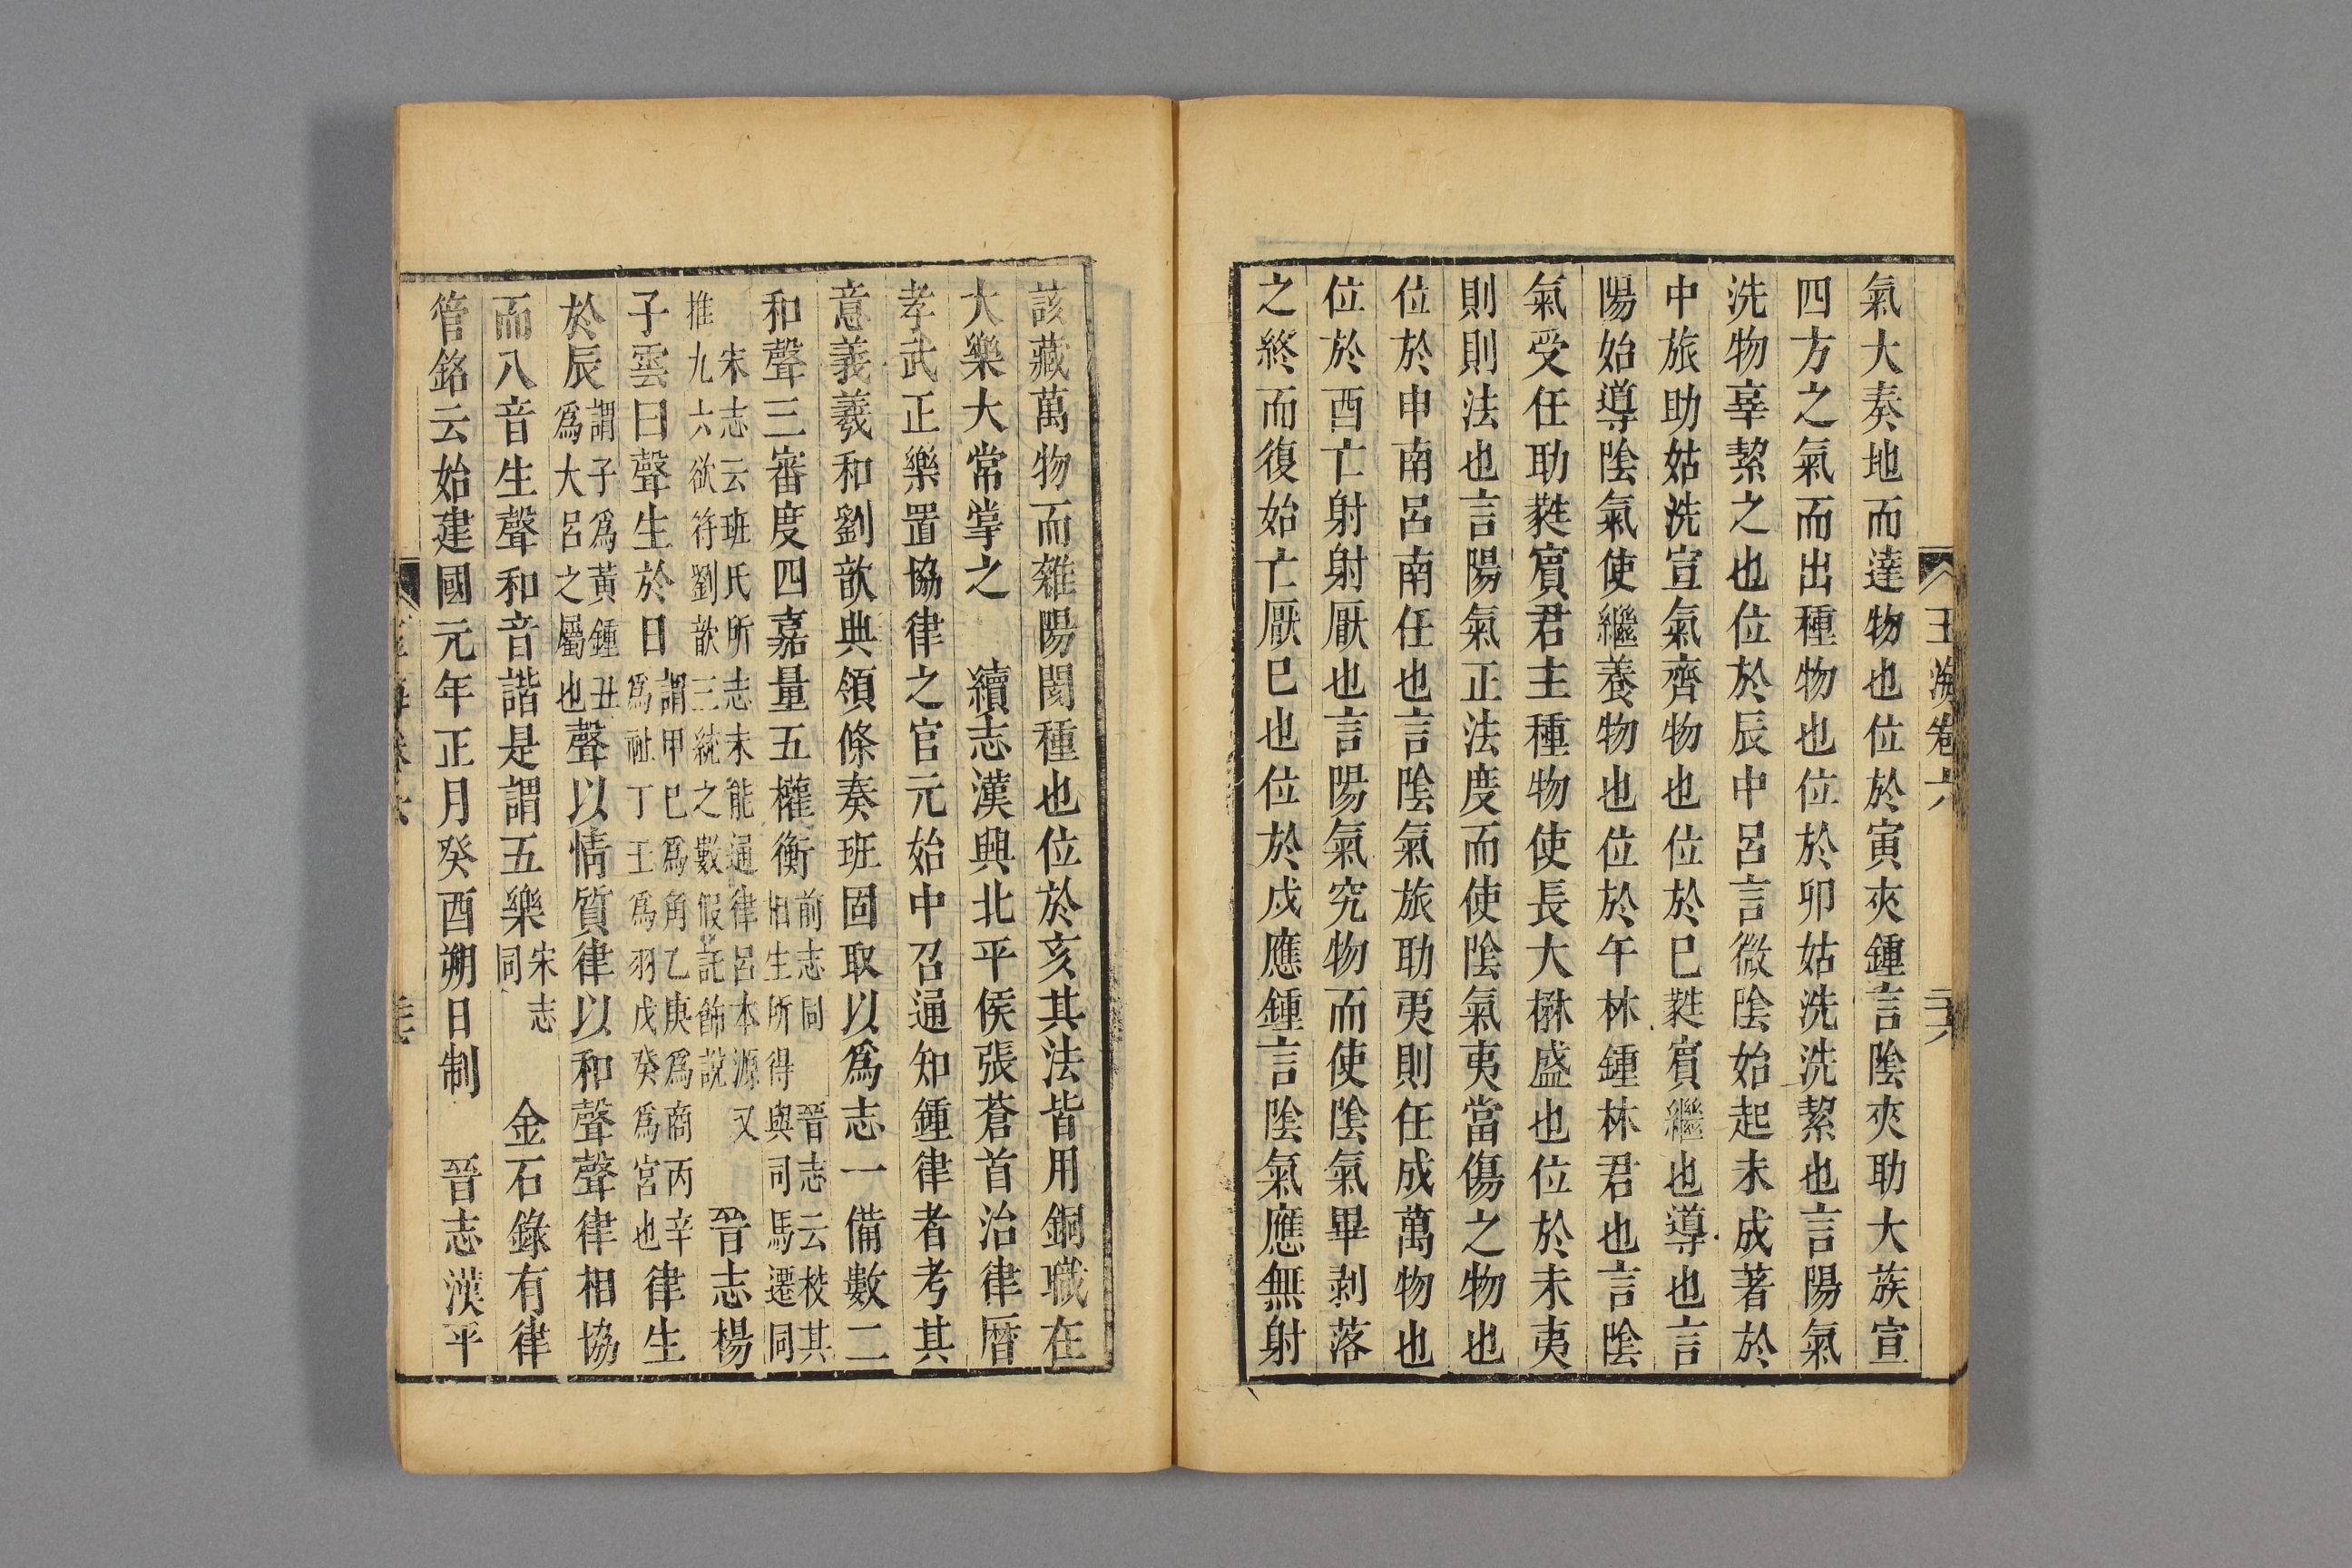 玉海卷六
氣大奏地而達物也位於寅夾鍾言陰夾助大族宣
四方之氣而出種物也位於卯姑洗洗絜也言陽氣
洗物辜絜之也位於辰中呂言微陰始起未成著於
中旅助姑洗宣氣齊物也位於巳蕤賔繼也導也言
陽始導陰氣使繼養物也位於午林鍾林君也言陰
氣受任助蕤賔君主種物使長大楙盛也位於未夷
則則法也言陽氣正法度而使陰氣夷當傷之物也
位於申南呂南任也言陰氣旅助夷則任成萬物也
位於酉亡射射厭也言陽氣究物而使陰氣畢剥落
之終而復始亡厭巳也位於戌應鍾言陰氣應無射
該藏萬物而雜陽閡種也位於亥其法皆用銅職在
大樂大常掌之　續志漢興北平侯張蒼首治律厯
孝武正樂置協律之官元始中召通知鍾律者考其
意義羲和劉歆典領條奏班固取以爲志一備數二
和聲三審度四嘉量五權衡前志同　晉志云校其
相生所得與司馬遷同
宋志云班氏所志未能通律呂本源又
推九六欲符劉歆三統之數假託飾說　晉志楊
子雲曰聲生於日謂甲巳爲角乙庚爲商丙辛
爲祉丁壬爲羽戊癸爲宮也律生
於辰謂子爲黃鍾丑
爲大呂之屬也聲以情質律以和聲聲律相協
而八音生聲和音諧是謂五樂宋志
同　金石錄有律
管銘云始建國元年正月癸酉朔日制　晉志漢平